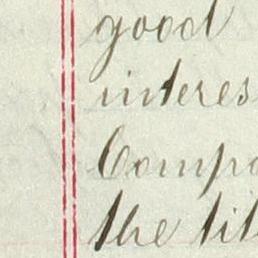 good
interes
Compa
the tit